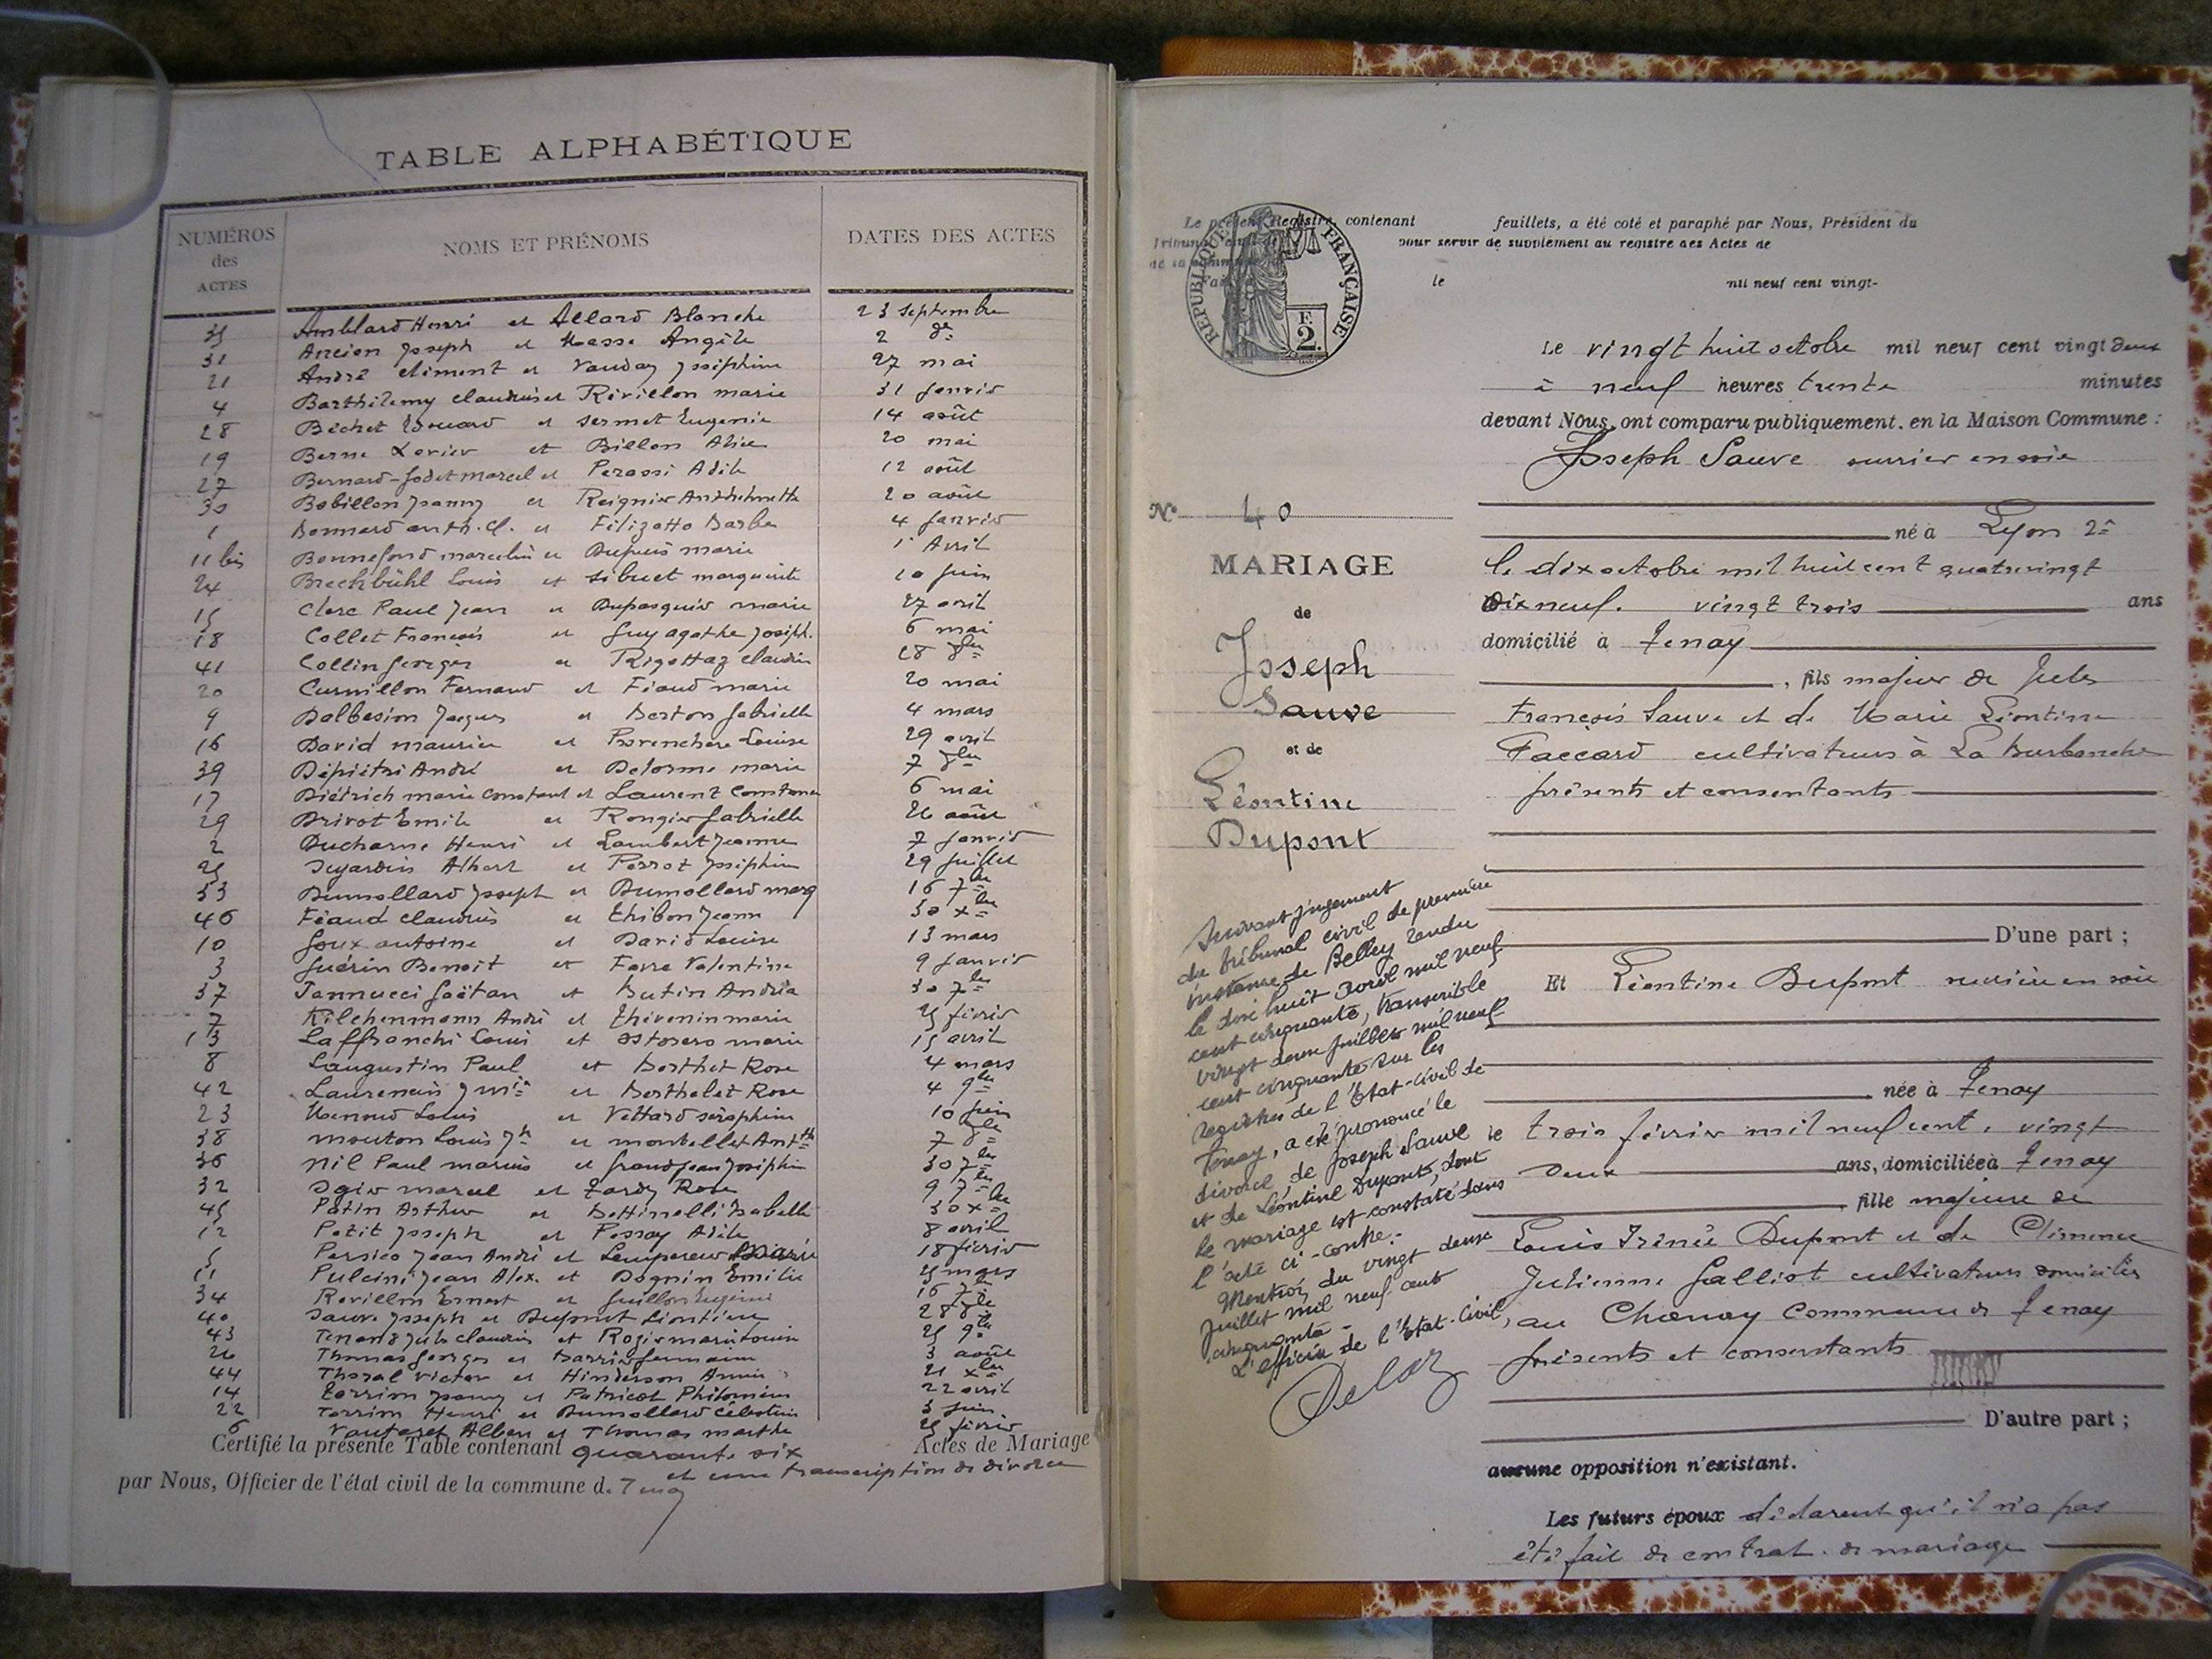 TABLE ALPHABÉTIQUE
NUMÉROS des ACTES NOMS ET PRÉNOMS DATES DES ACTES
35 Amblard Henri et Allard Blanche 23 septembre
31 Ancien Joseph et Masse Angèle 2
21 André Climent et Vauday Joséphine 27 mai
4 Barthélemy Claudius et Rivillon marie 31 Janvier
28 Béchet Edouard et Sermet Eugenie 14 août
19 Berne Xavier et Billon Alice 20 mai
27 Bernard-Godet marcel et Perassi Adèle 12 août
30 Bobillon Joanny et Reignier Anthelmette 20 août
1 Bonnard anth. Cl. et Filizatto Barbe 4 Janvier
11 bis Bonnefond marcelin et Dupuis marie 1 Avril
24 Brechbühl Louis et Sibuet marguerite 10 juin
15 Clerc Paul Jean et Dupasquier marie 27 avril
18 Collet François et Guy agathe Joséph. 6 mai
41 Collin Georges et Rigottaz Claudine 28 8bre
20 Curnillon Fernand et Féaud marie 20 mai
9 Dalbesion Jacques et Berton Gabrielle 4 mars
16 David maurice et Provenchère Louise 29 avril
39 Dépiétri André et Delorme marie 7 8bre
17 Diétrich marie Constant et Laurent Constance 6 mai
29 Drivot Emile et Rongier Gabrielle 26 août
2 Ducharne Henri et Lambert Jeanne 7 Janvier
25 Dujardin Albert et Perrot Joséphine 29 Juillet
33 Dumollard Joseph et Dumollard marg 16 7bre
46 Féaud Claudius et Thibon Jeanne 30 xbre
10 Goux antoine et David Louise 13 mars
3 Guérin Benoit et Favre Valentine 9 Janvier
37 Jannucci Gaëtan et Butin Andréa 30 7bre
7 Kilchenmann André et Thévenin marie 25 février
13 Laffranchi Louis et Ostorero marie 15 avril
8 Laugustin Paul et Berthet Rose 4 mars
42 Laurencin J et Berthelet Rose 4 9bre
23 Menoud Louis et Vettard séraphine 10 Juin
38 Mouton Louis Jh et Montellet Antte 7 8bre
36 Nil Paul marius et Grandjean Joséphine 30 7bre
32 Ogier marcel et Tardy Rose 9 7bre
45 Patin Arthur et Bettinelli Isabelle 30 xbre
12 Petit Joseph et Possoy Adèle 8 avril
5 Persico Jean André et Lempereur Marie 18 février
11 Pulcini Jean Alex. et Dognin Emilie 25 mars
34 Revillon Ernest et Guillon Eugénie 16 7bre
40 Sauve Joseph et Dupont Léontine 28 8bre
43 Tenand Jules Claudius et Rogier marie Louise 25 9bre
26 Thomas Georges et Barrier Germaine 3 août
44 Thoral Victor et Hinderson Annie 21 xbre
14 Torrim Joanny et Patricot Philomène 22 avril
22 Torrim Henri et Dumollard Célestine 3 Juin
6 Vautaret Albert et Thomas marthe 25 février
Certifié la présente Table contenant quarante six Actes de Mariage
et une transcription de divorce
par Nous, Officier de l'état civil de la commune d. Tenay
Le présent Registre, contenant feuillets, a été coté et paraphé par Nous, Président du
Tribunal civil de pour servir de supplément au registre des Actes de
de la commune
Fait le mil neuf cent vingt-
RÉPUBLIQUE FRANÇAISE
F. 2.
Le vingt huit octobre mil neuf cent vingt deux
à neuf heures trente minutes
devant Nous, ont comparu publiquement, en la Maison Commune :
Joseph Sauve ouvrier en soie
né à Lyon 2e
le dix octobre mil huit cent quatre vingt
dix neuf. vingt trois ans
domicilié à Tenay
, fils majeur de Jules
François Sauve et de Marie Léontine
Faccard cultivateurs à La Burbanche
présents et consentants
D'une part ;
Et Léontine Dupont ouvrière en soie
née à Tenay
le trois février mil neuf cent, vingt
deux ans, domiciliée à Tenay
fille majeure de
Louis Irénée Dupont et de Climence
Julienne Galliot cultivateurs domiciliés
au Chanay Commune de Tenay
présents et consentants
D'autre part ;
aucune opposition n'existant.
Les futurs époux déclarent qu'il n'a pas
été fait de contrat de mariage
N° 40
MARIAGE
de
Joseph
Sauve
et de
Léontine
Dupont
Suivant jugement
du tribunal civil de première
instance de Belley rendu
le dix huit avril mil neuf
cent cinquante, transcrit le
vingt deux juillet mil neuf
cent cinquante sur les
registres de l'Etat-civil de
Tenay, a été prononcé le
divorce de Joseph Sauve
et de Léontine Dupont, dont
le mariage est constaté dans
l'acte ci-contre.-
Mention du vingt deux
juillet mil neuf cent
cinquante -
L'officier de l'Etat-Civil,